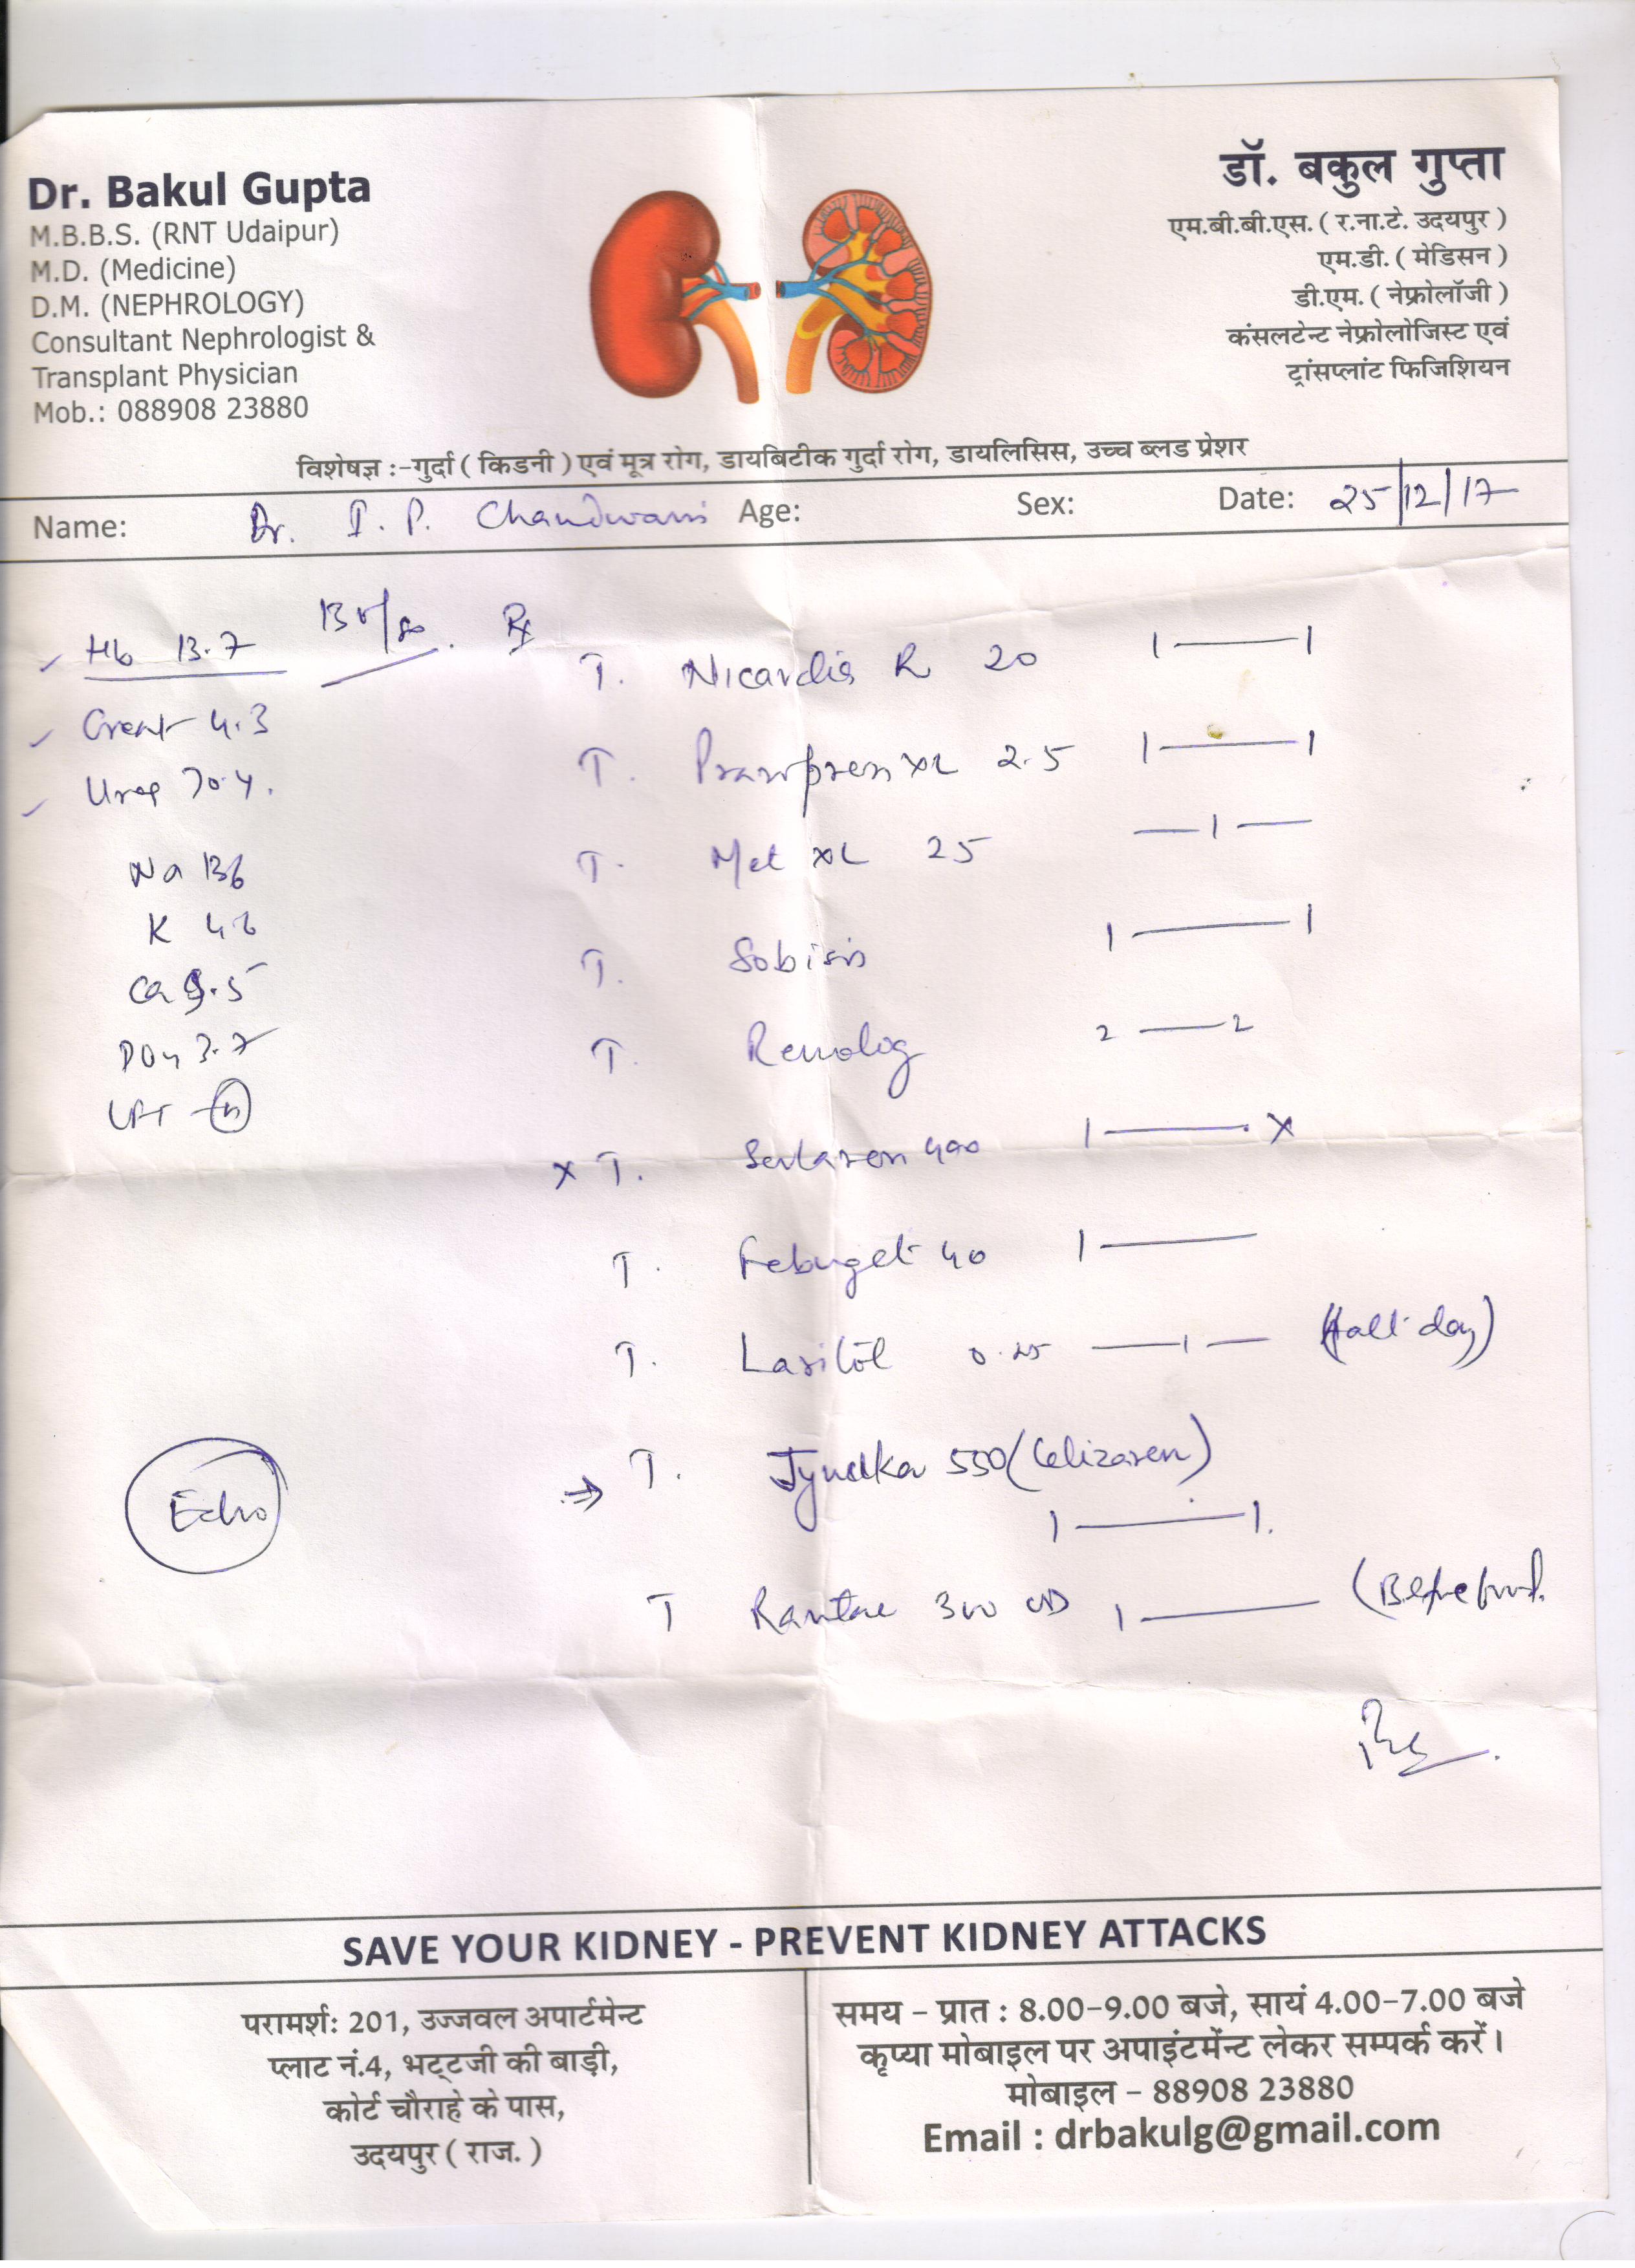 Dr. Bakul Gupta
M.B.B.S. (RNT Udaipur)
M.D. (Medicine)
D.M. (NEPHROLOGY)
Consultant Nephrologist &
Transplant Physician
Mob.: 088908 23880
डॉ. बकुल गुप्ता
एम.बी.बी.एस. ( र.ना.टे. उदयपुर )
एम.डी. ( मेडिसन )
डी.एम. ( नेफ्रोलॉजी )
कंसलटेन्ट नेफ्रोलोजिस्ट एवं
ट्रांसप्लांट फिजिशियन
विशेषज्ञ :-गुर्दा ( किडनी ) एवं मूत्र रोग, डायबिटीक गुर्दा रोग, डायलिसिस, उच्च ब्लड प्रेशर
Name: Dr. I. P. Chandwani Age: Sex: Date: 25/12/17
Hb 13.7
Creat 4.3
Urea 70.4.
Na 136
K
Ca 9.5
PO4 3.7
Echo
Rx
T. Nicardia R 20 1 — 1
T. xL 2.5 1 — 1
T. Met xL 25 — 1 —
T. Sobisis 1 — 1
T. Renolog 2 — 2
x T. 400 1 — x
T. Febuget 40 1 —
T. 0.25 — 1 — (Alt day)
T. 550 1 — 1.
T Rantac 300 OD 1 — (Before food.
SAVE YOUR KIDNEY - PREVENT KIDNEY ATTACKS
परामर्शः 201, उज्जवल अपार्टमेन्ट
प्लाट नं.4, भट्टजी की बाड़ी,
कोर्ट चौराहे के पास,
उदयपुर ( राज. )
समय – प्रात : 8.00-9.00 बजे, सायं 4.00-7.00 बजे
कृप्या मोबाइल पर अपाइंटमेंन्ट लेकर सम्पर्क करें।
मोबाइल – 88908 23880
Email : drbakulg@gmail.com